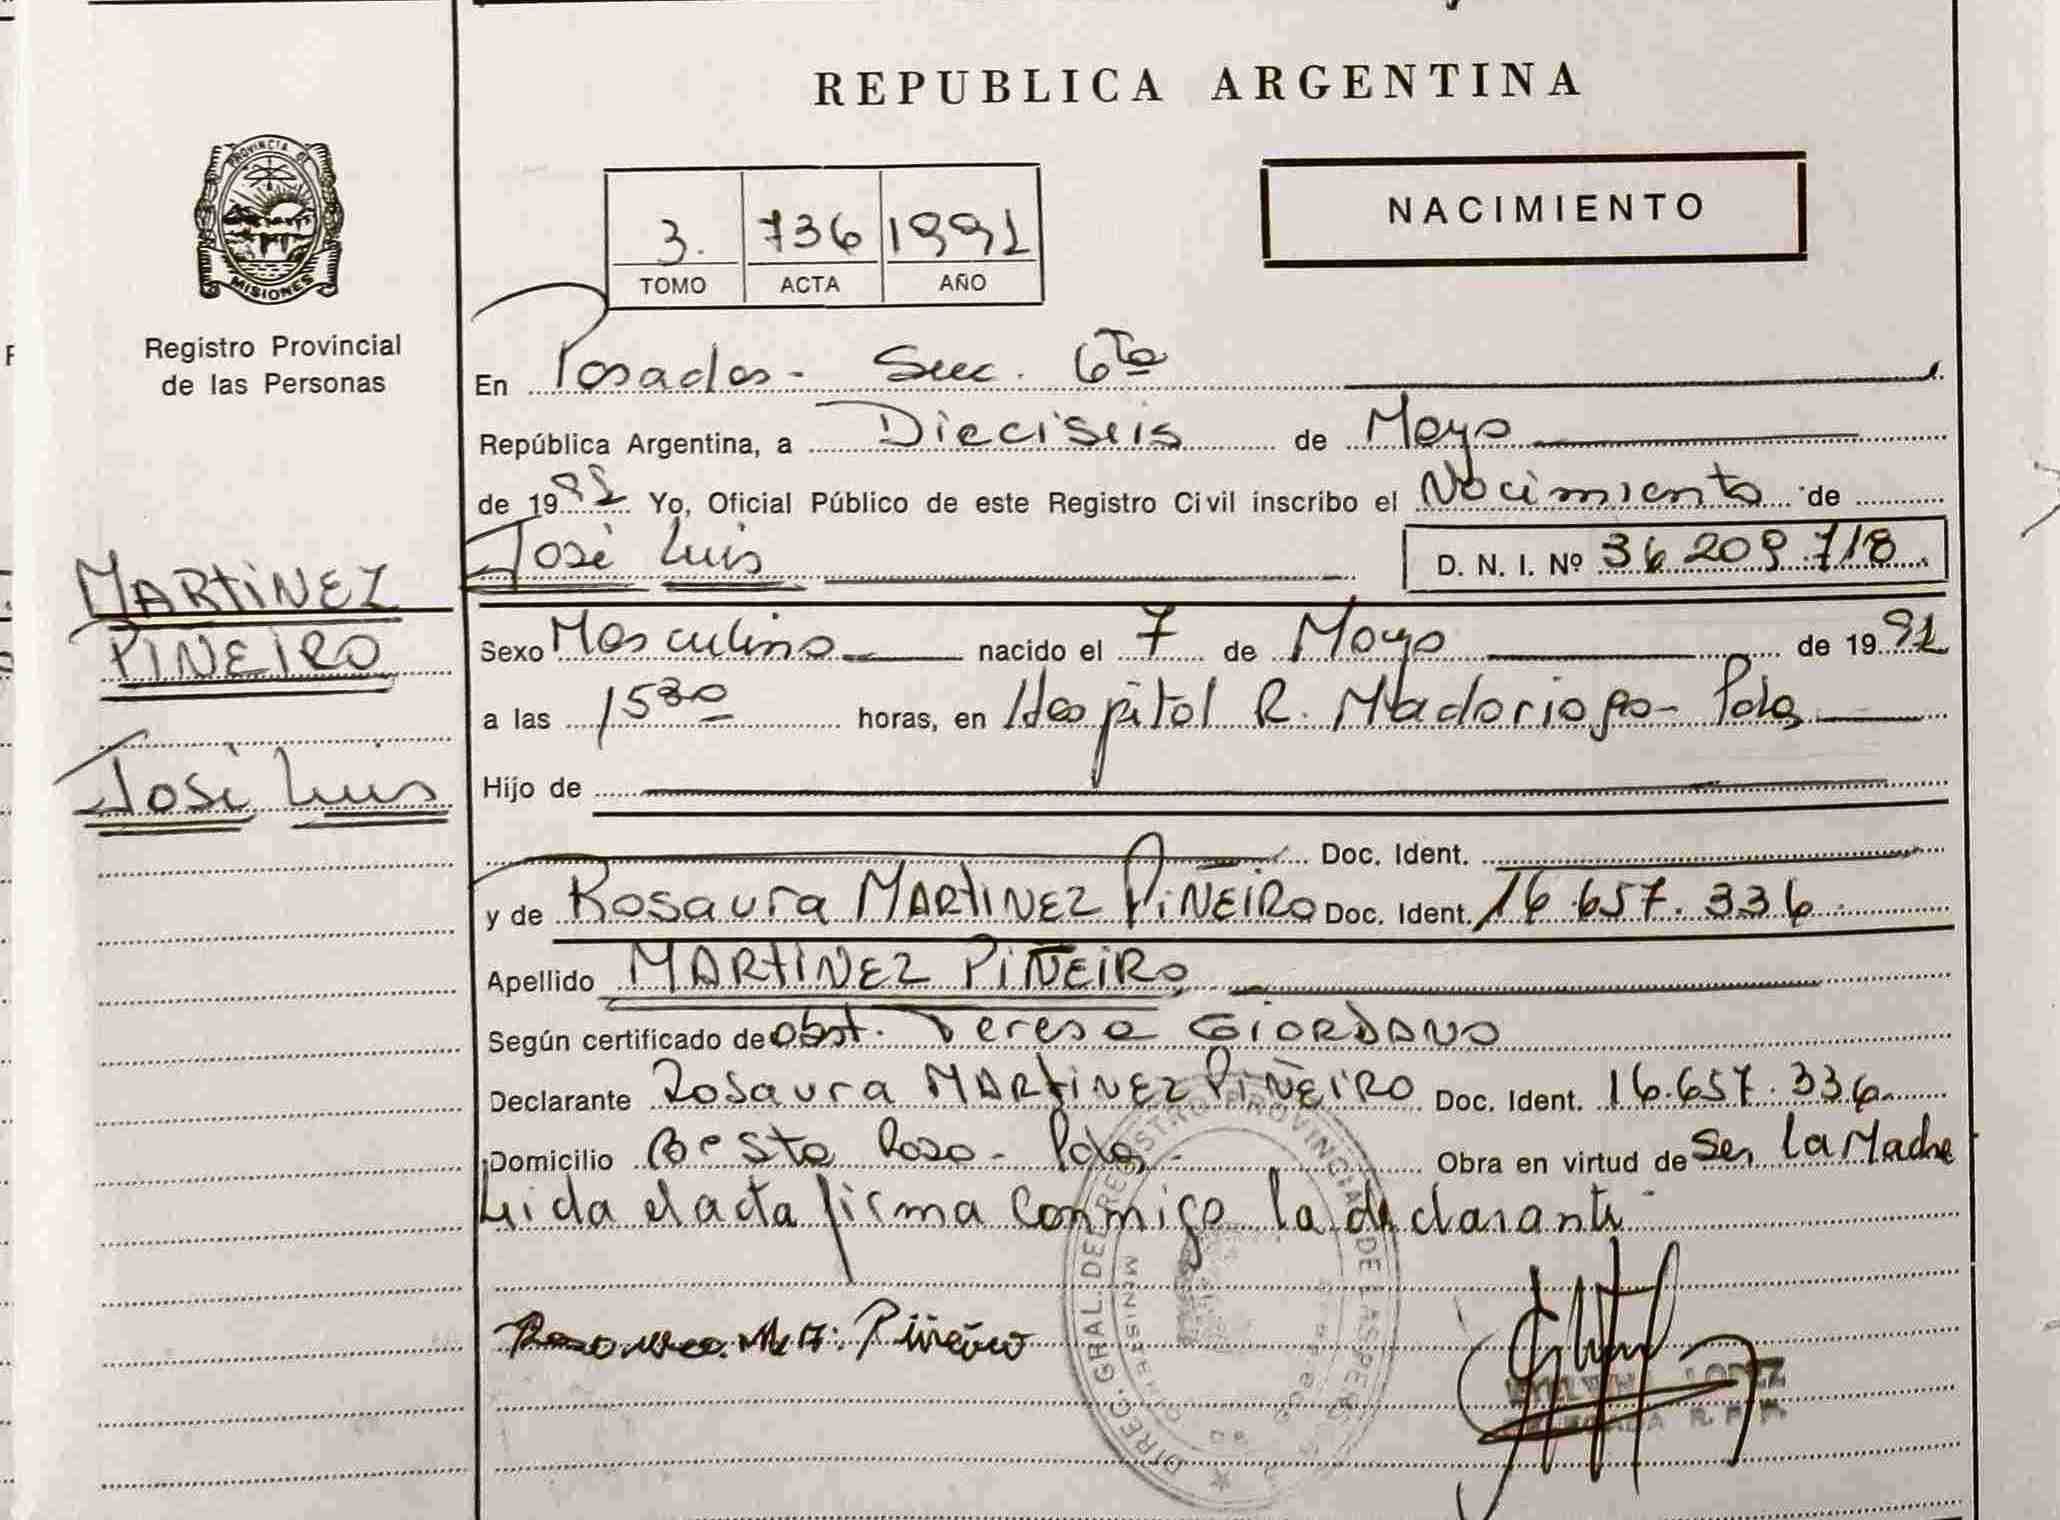 REPUBLICA ARGENTINA
PROVINCIA DE
MISIONES
Registro Provincial
de las Personas
NACIMIENTO
3. 736 1991
TOMO ACTA AÑO
En Posadas - Secc. 6ta
República Argentina, a Dieciseis de Mayo
de 1991 Yo, Oficial Público de este Registro Civil inscribo el Nacimiento de
José Luis D. N. I. Nº 36 209.718
MARTINEZ
PIÑEIRO
José Luis
Sexo Masculino nacido el 7 de Mayo de 1991
a las 15 30 horas, en Hospital R. Madariaga - Pdas
Hijo de
Doc. Ident.
y de Rosaura MARTINEZ PIÑEIRO Doc. Ident. 16.657.336
Apellido MARTINEZ PIÑEIRO
Según certificado de obst. Teresa GIORDANO
Declarante Rosaura MARTINEZ PIÑEIRO Doc. Ident. 16.657.336
Domicilio Bº Sta Rosa - Pdas - Obra en virtud de Ser la Madre
Leida el acta firma conmigo la declarante
Piñeiro
DIREC. GRAL. DEL REGISTRO PROVINCIAL DE LAS PERS
MINISTERIO
LOPEZ
DELEGADA R. P. P.